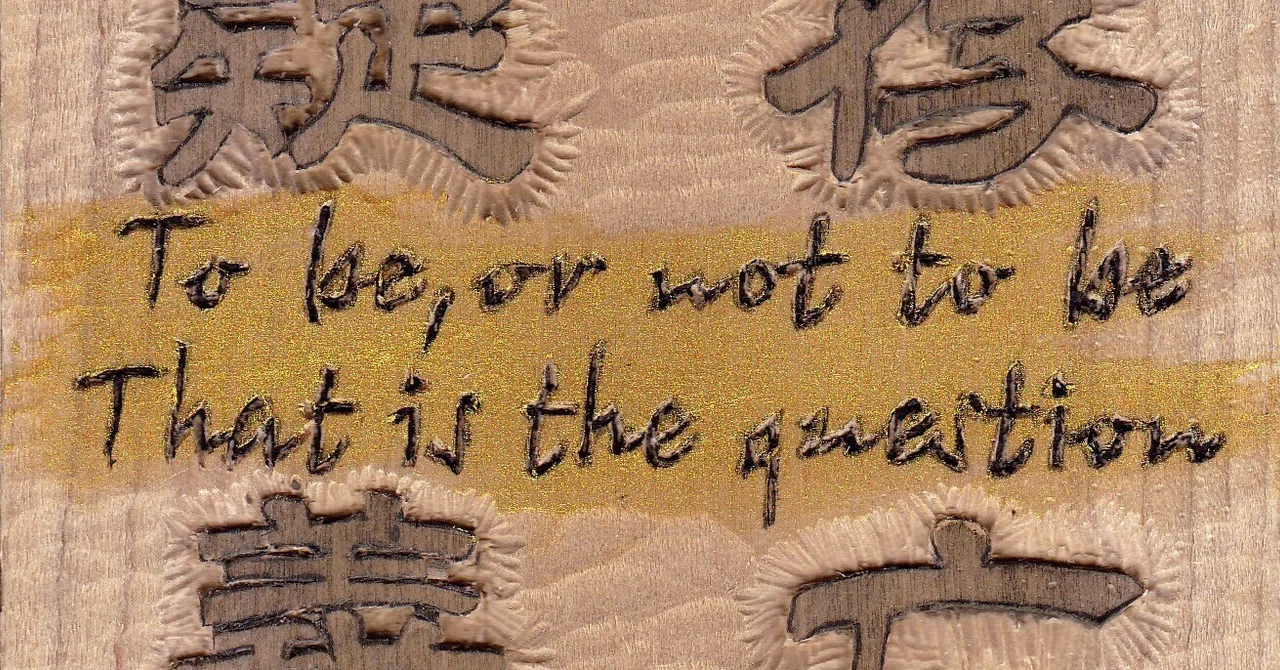 疑 存
To be, or not to be
That is the question
義 亡